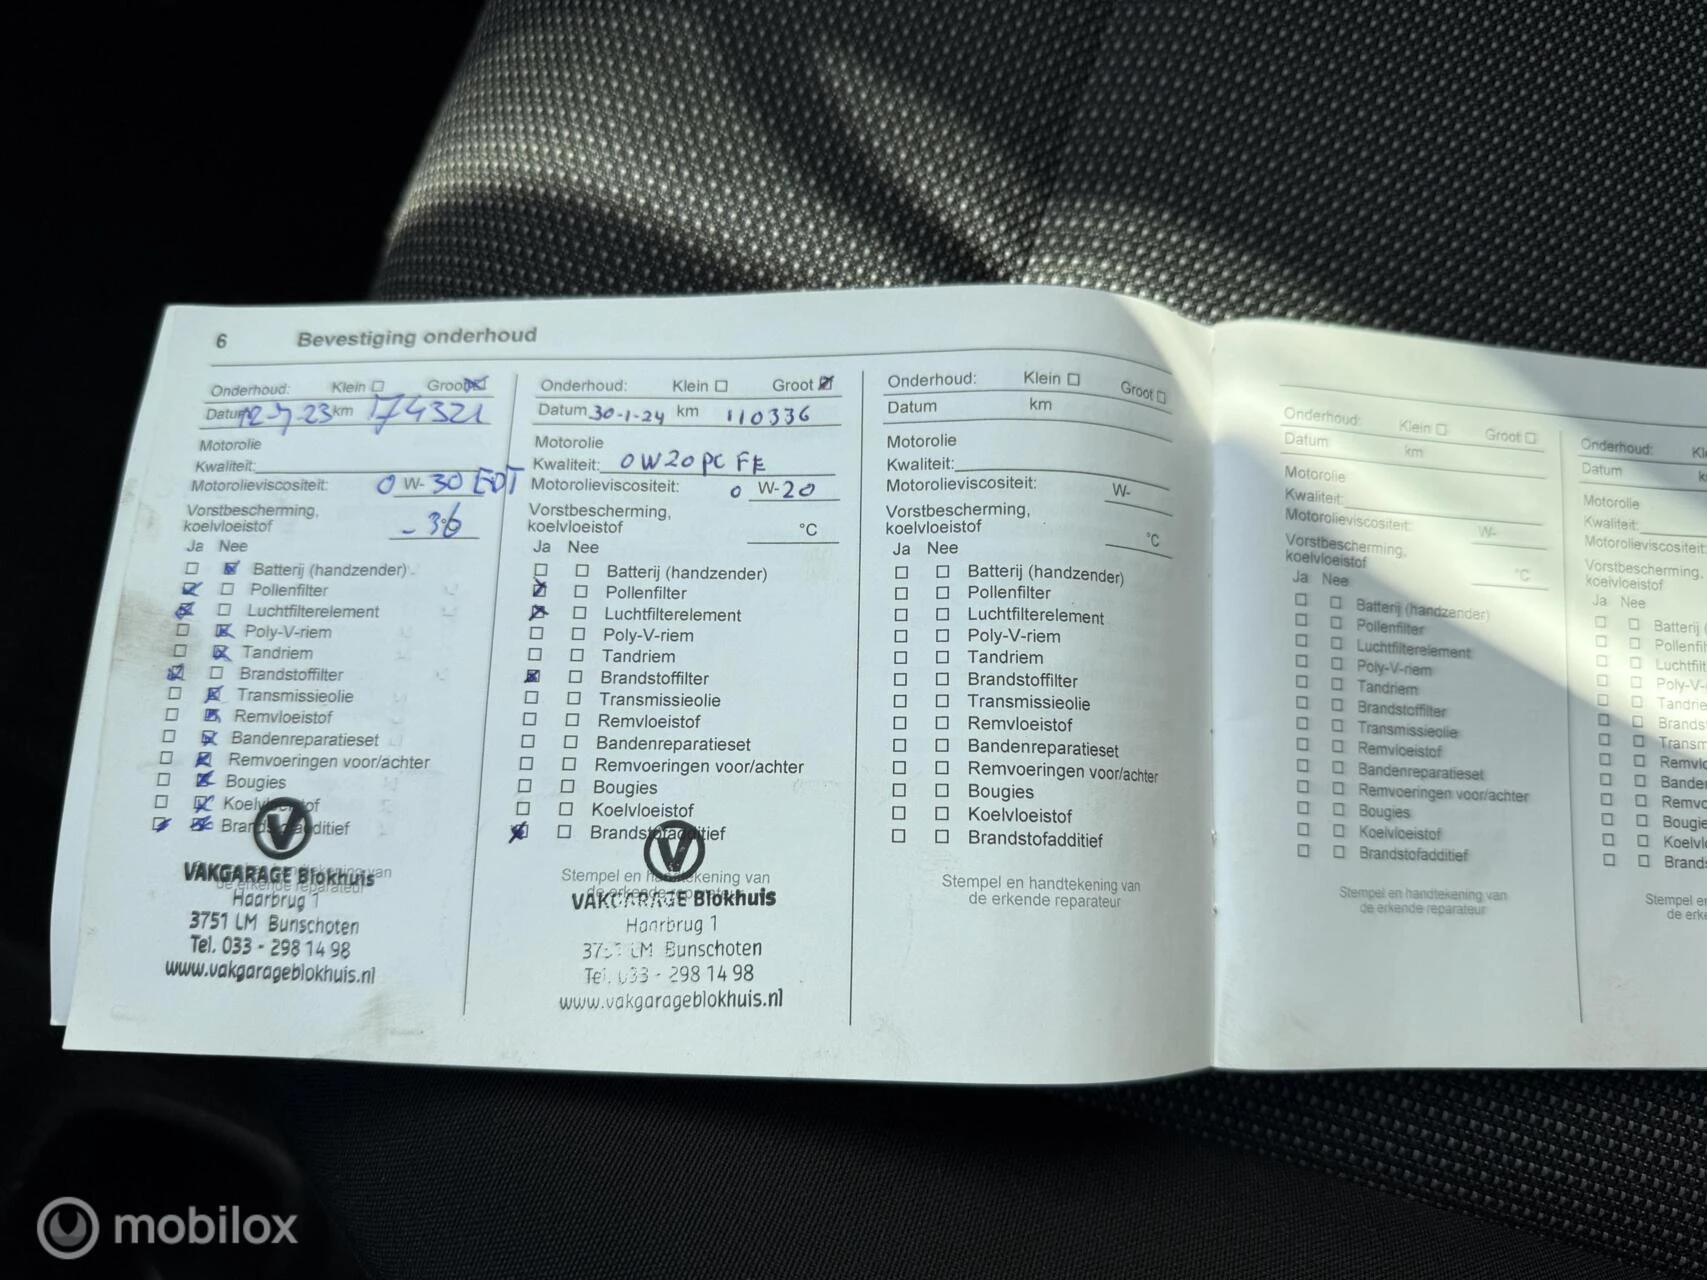 6 Bevestiging onderhoud
Onderhoud: Klein Groot
Datum 12-7-23 km 174321
Motorolie
Kwaliteit:
Motorolieviscositeit: 0 W-30 EDT
Vorstbescherming,
koelvloeistof -36
Ja Nee
Batterij (handzender)
Pollenfilter
Luchtfilterelement
Poly-V-riem
Tandriem
Brandstoffilter
Transmissieolie
Remvloeistof
Bandenreparatieset
Remvoeringen voor/achter
Bougies
Koelvloeistof
Brandstofadditief
VAKGARAGE Blokhuis
Haarbrug 1
3751 LM Bunschoten
Tel. 033 - 298 14 98
www.vakgarageblokhuis.nl
Onderhoud: Klein Groot
Datum 30-1-24 km 110336
Motorolie
Kwaliteit: 0W20 PC FE
Motorolieviscositeit: 0 W-20
Vorstbescherming,
koelvloeistof °C
Ja Nee
Batterij (handzender)
Pollenfilter
Luchtfilterelement
Poly-V-riem
Tandriem
Brandstoffilter
Transmissieolie
Remvloeistof
Bandenreparatieset
Remvoeringen voor/achter
Bougies
Koelvloeistof
Brandstofadditief
Stempel en handtekening van
de erkende reparateur
VAKGARAGE Blokhuis
Haarbrug 1
3751 LM Bunschoten
Tel. 033 - 298 14 98
www.vakgarageblokhuis.nl
Onderhoud: Klein Groot
Datum km
Motorolie
Kwaliteit:
Motorolieviscositeit: W-
Vorstbescherming,
koelvloeistof °C
Ja Nee
Batterij (handzender)
Pollenfilter
Luchtfilterelement
Poly-V-riem
Tandriem
Brandstoffilter
Transmissieolie
Remvloeistof
Bandenreparatieset
Remvoeringen voor/achter
Bougies
Koelvloeistof
Brandstofadditief
Stempel en handtekening van
de erkende reparateur
Onderhoud: Klein Groot
Datum km
Motorolie
Kwaliteit:
Motorolieviscositeit: W-
Vorstbescherming,
koelvloeistof °C
Ja Nee
Batterij (handzender)
Pollenfilter
Luchtfilterelement
Poly-V-riem
Tandriem
Brandstoffilter
Transmissieolie
Remvloeistof
Bandenreparatieset
Remvoeringen voor/achter
Bougies
Koelvloeistof
Brandstofadditief
Stempel en handtekening van
de erkende reparateur
Onderhoud: Kl
Datum k
Motorolie
Kwaliteit:
Motorolieviscositeit:
Vorstbescherming,
koelvloeistof
Ja Nee
Batterij (
Pollenfil
Luchtfil
Poly-V-
Tandrie
Brands
Transm
Remvlo
Banden
Remvo
Bougie
Koelvl
Brands
Stempel e
de erke
mobilox